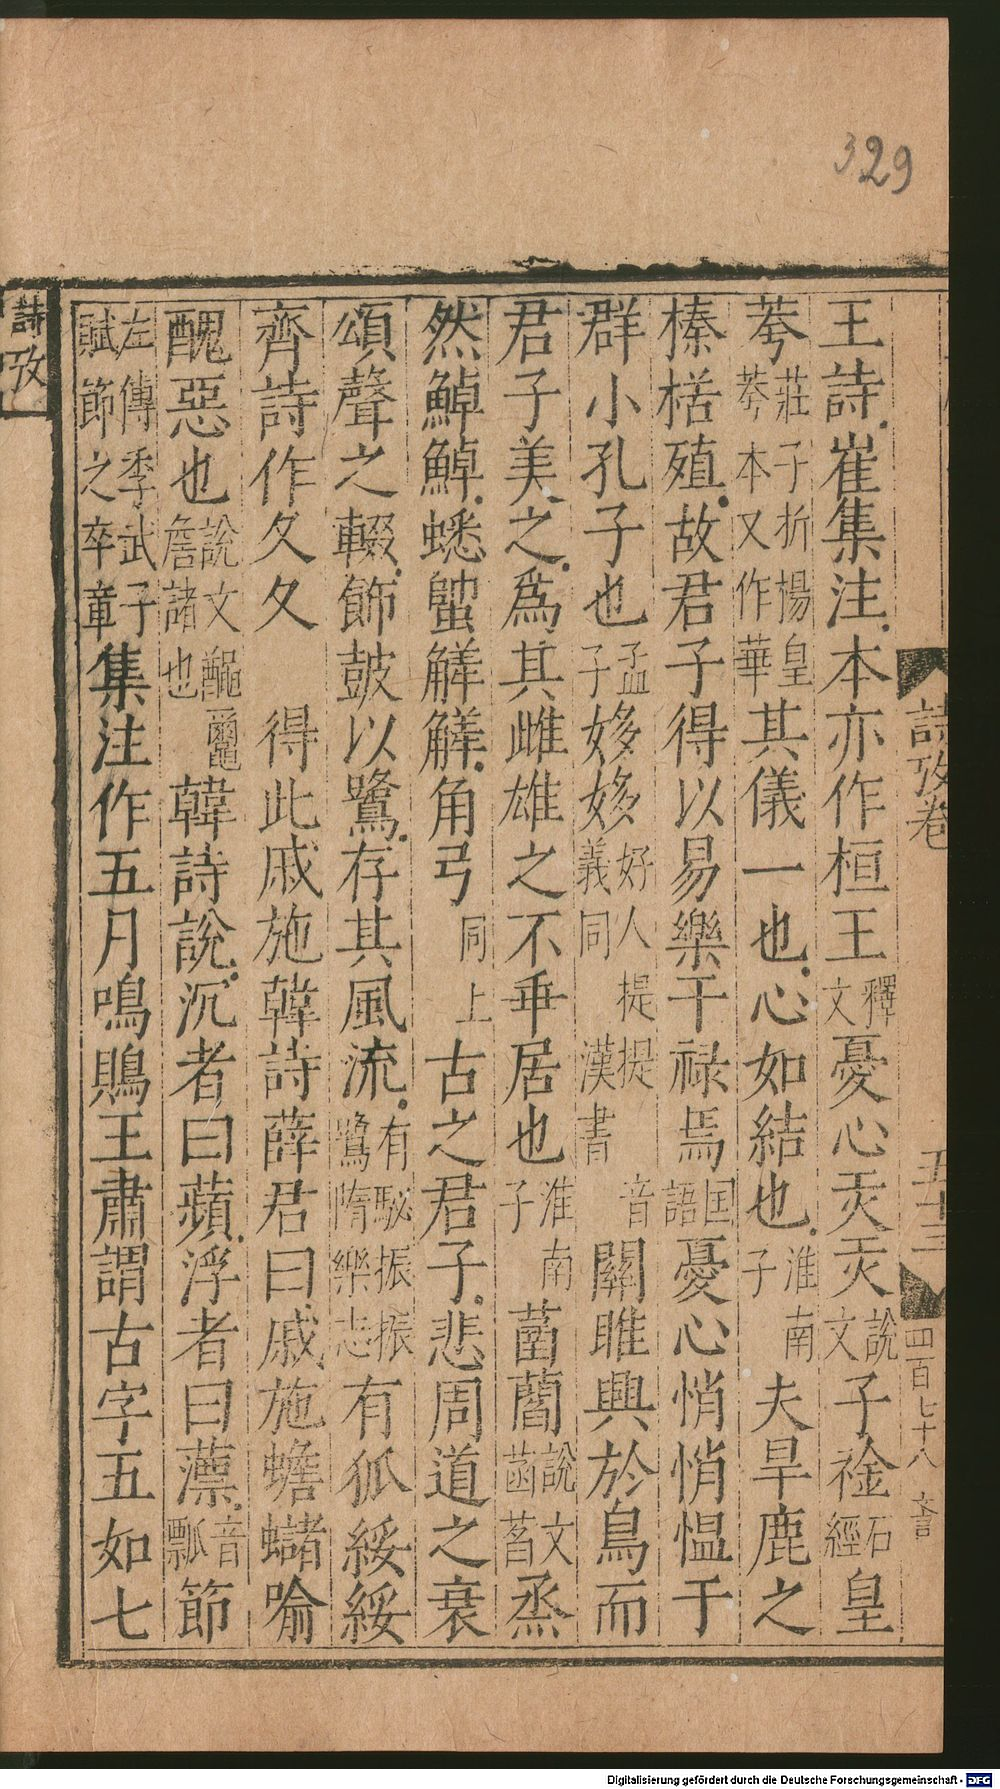 329
詩攷卷
五十三
四百七十八
王詩崔集注本亦作桓王釋文憂心灻灻說文子衿石經皇
荂莊子折楊皇荂本又作華其儀一也心如結也淮南子夫旱鹿之
榛楛殖故君子得以易樂干祿焉国語憂心悄悄愠于
群小孔子也孟子姼姼好人提提音義同漢書關雎興於鳥而
君子美之為其雌雄之不乖居也淮南子菡蕳說文菡萏烝
然鯙鯙蟋蟀觲觲角弓同上古之君子悲周道之衰
頌聲之輟飾鼓以鷺存其風流有駜振振鷺隋樂志有狐綏綏
齊詩作夂夂得此戚施韓詩薛君曰戚施蟾蠩喻
醜惡也說文𪓰𪓿詹諸也韓詩說沉者曰蘋浮者曰薸音瓢節
左傳季武子賦節之卒章集注作五月鳴鵙王肅謂古字五如七
詩攷
Digitalisierung gefördert durch die Deutsche Forschungsgemeinschaft - DFG